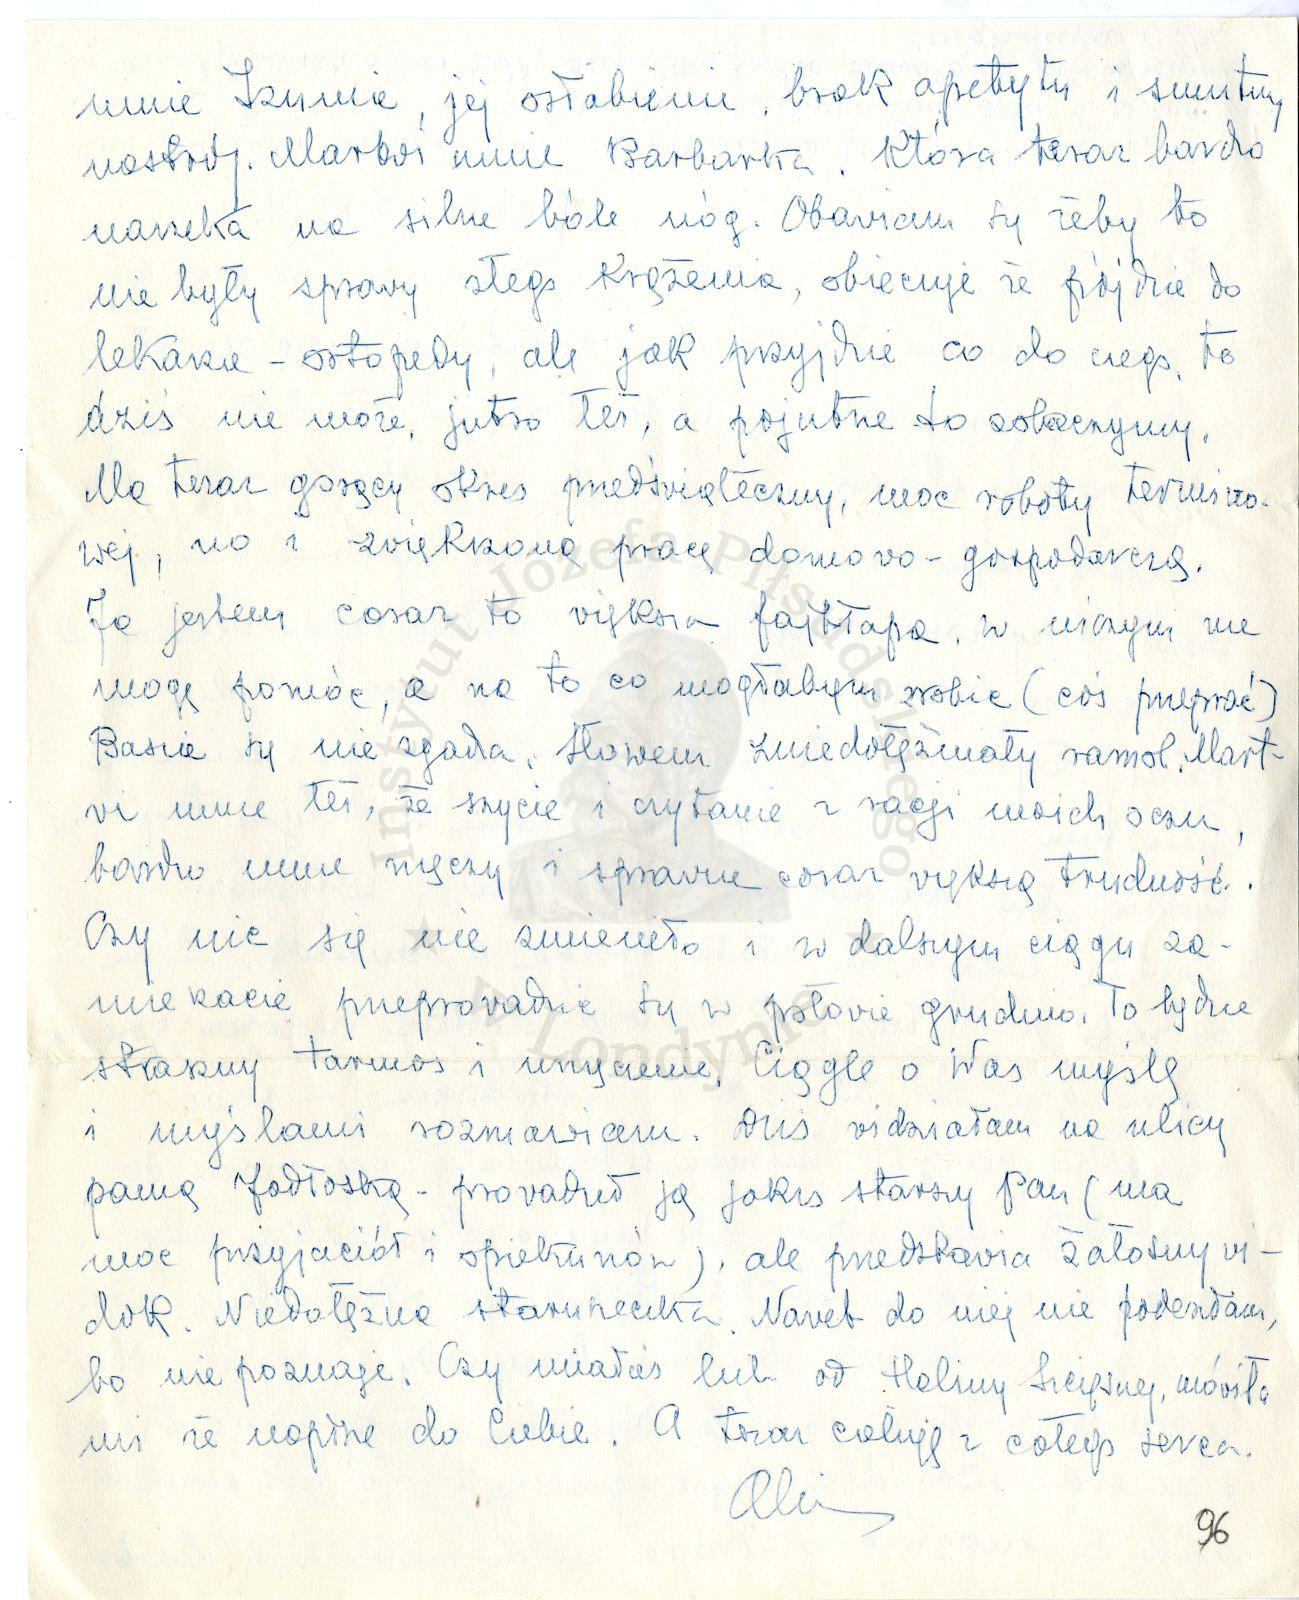 mnie Izunia, jej osłabienie, brak apetytu i smutny
nastrój. Martwi mnie Barbarka, która teraz bardzo
narzeka na silne bóle nóg. Obawiam się żeby to
nie były sprawy złego krążenia, obiecuje że pójdzie do
lekarza - ortopedy, ale jak przyjdzie co do czego, to
dziś nie może, jutro też, a pojutrze to zobaczymy.
Ma teraz gorący okres przedświąteczny, moc roboty termino-
wej, no i zwiększoną pracę domowo-gospodarczą.
Ja jestem coraz to większa fajtłapa, w niczym nie
mogę pomóc, a na to co mogłabym zrobić (coś przeprać)
Basia się nie zgadza, słowem zniedołężniały ramol. Mart-
wi mnie też, że szycie i czytanie z racji moich oczu,
bardzo mnie męczy i sprawia coraz większą trudność.
Czy nic się nie zmieniło i w dalszym ciągu za-
miekacie przeprowadzić się w połowie grudnia. To będzie
straszny tarmos i umęczenie. Ciągle o Was myślę
i myślami rozmawiam. Dziś widziałam na ulicy
panią Jodłoską - prowadził ją jakiś starszy Pan (ma
moc przyjaciół i opiekunów), ale przedstawia żałosny wi-
dok. Niedołężna staruneczka. Nawet do niej nie podeszłam,
bo nie poznaje. Czy miałaś list od Haliny, mówiła
mi że napisze do Ciebie. A teraz całuję z całego serca.
Ala
96
Instytut Józefa Piłsudskiego
w Londynie